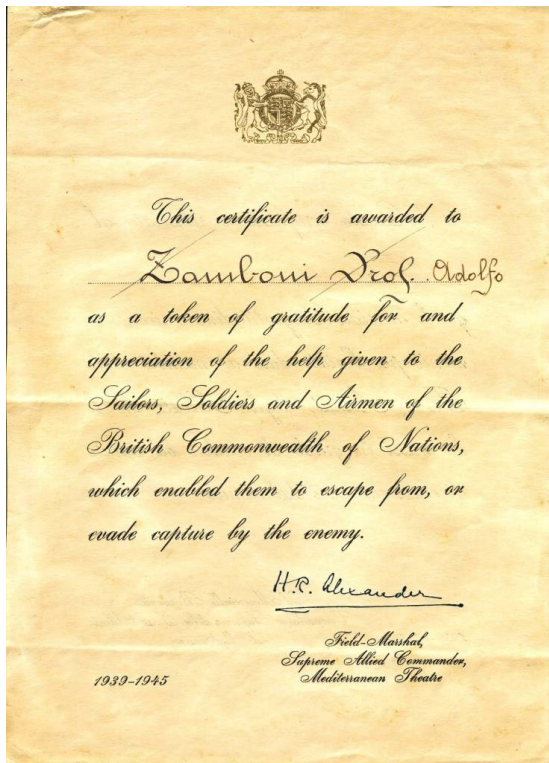 This certificate is awarded to
Zamboni Prof. Adolfo
as a token of gratitude for and
appreciation of the help given to the
Sailors, Soldiers and Airmen of the
British Commonwealth of Nations,
which enabled them to escape from, or
evade capture by the enemy.
H.R. Alexander
Field-Marshal,
Supreme Allied Commander,
Mediterranean Theatre
1939-1945